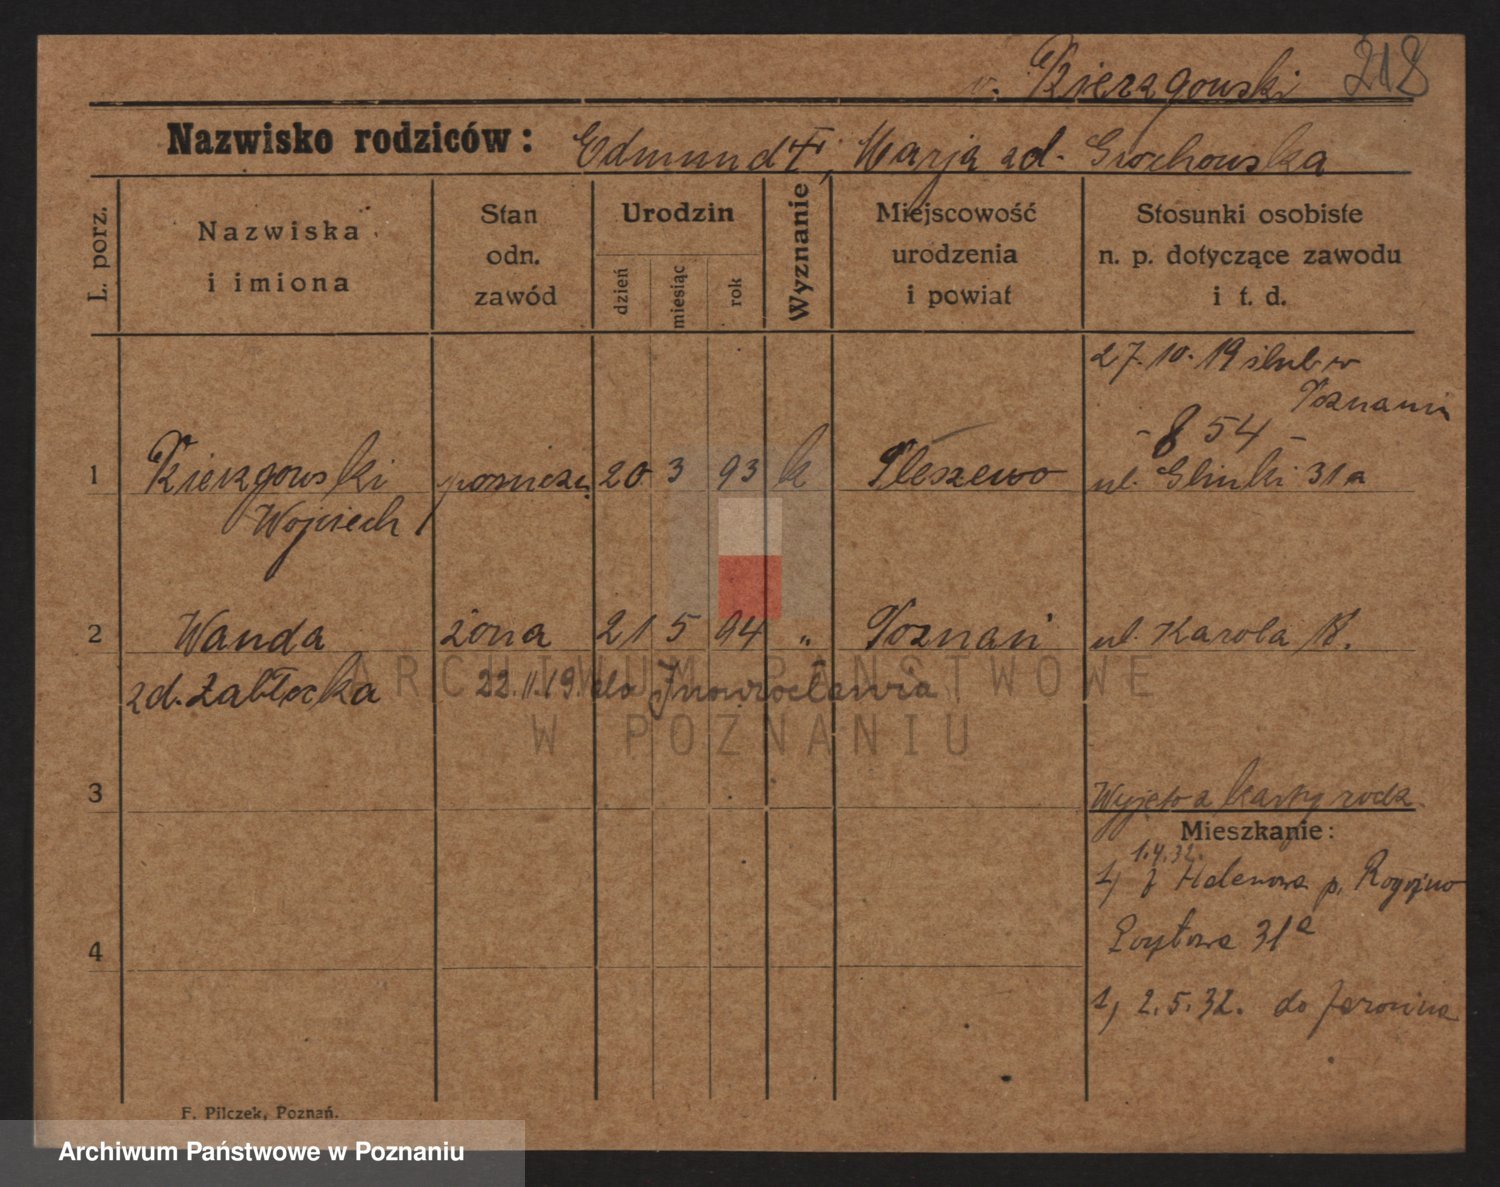 v. Kierzgowski 218
Nazwisko rodziców: Edmund †, Marja zd. Grochowska
L. porz.
Nazwiska i imiona
Stan odn. zawód
Urodzin
dzień miesiąc rok
Wyznanie
Miejscowość urodzenia i powiat
Stosunki osobiste n. p. dotyczące zawodu i t. d.
27.10.19 ślub w
Poznaniu
- 854 -
1 Kierzgowski 20 3 93 k Pleszewo ul. Glinki 31a
Wojciech
2 Wanda żona 21 5 94 „ Poznań ul. Karola 18.
zd. Zabłocka 22.11.19. do Inowrocławia
ARCHIWUM PAŃSTWOWE
W POZNANIU
3 Wyjęto z karty rodz.
Mieszkanie:
1.4.32.
1) z Helenowa p. Rogoźno
4 31a
1) 2.5.32. do Jarocina
F. Pilczek, Poznań.
Archiwum Państwowe w Poznaniu